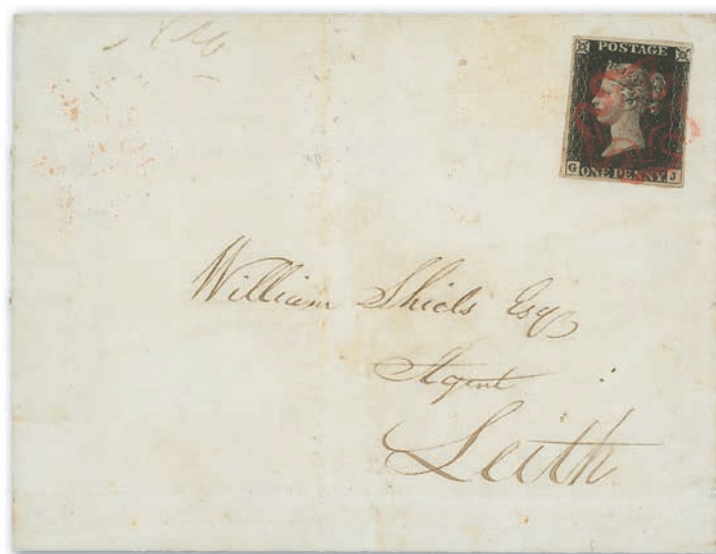 POSTAGE
G ONE PENNY J
William Shiels Esq
Agent
Leith